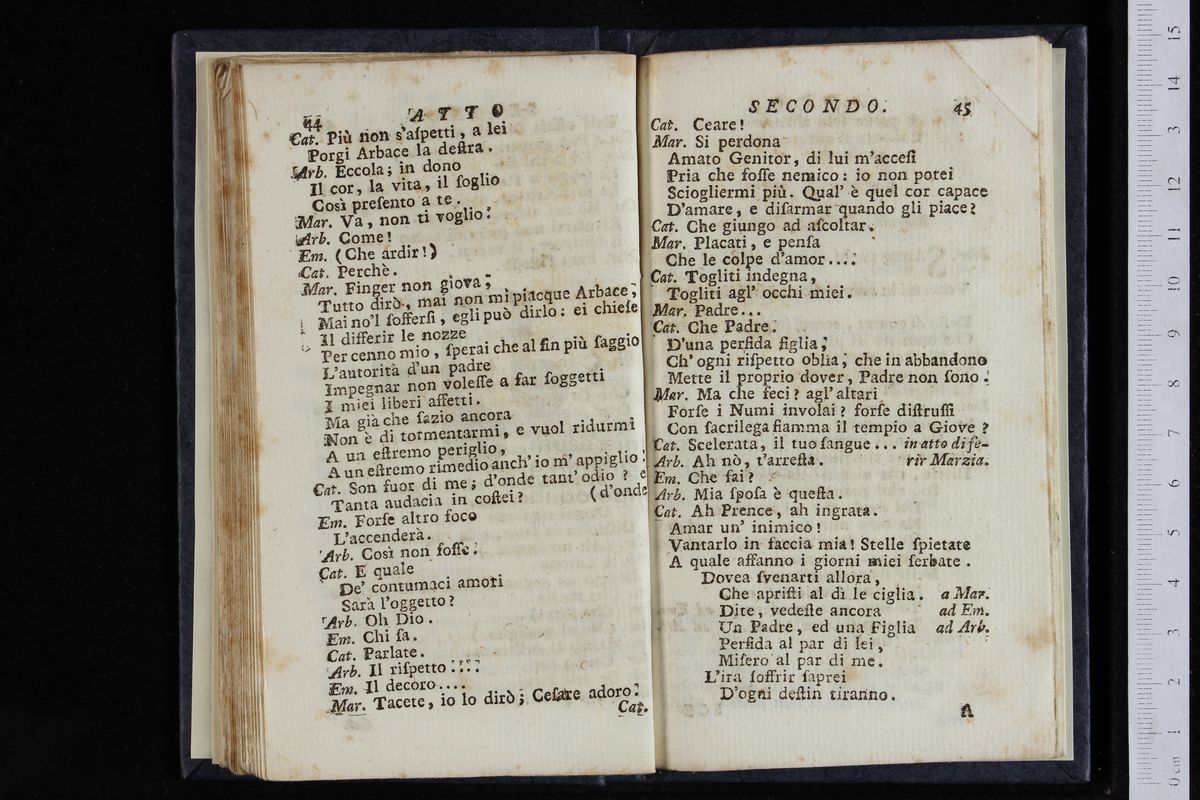 44 ATTO
Cat. Più non s'aſpetti, a lei
Porgi Arbace la deſtra.
Arb. Eccola; in dono
Il cor, la vita, il ſoglio
Così preſento a te.
Mar. Va, non ti voglio.
Arb. Come!
Em. (Che ardir!)
Cat. Perchè.
Mar. Finger non giova;
Tutto dirò, mai non mi piacque Arbace;
Mai no'l ſofferſi, egli può dirlo: ei chieſe
Il differir le nozze
Per cenno mio, ſperai che al fin più ſaggio
L'autorità d'un padre
Impegnar non voleſſe a far ſoggetti
I miei liberi affetti.
Ma già che ſazio ancora
Non è di tormentarmi, e vuol ridurmi
A un eſtremo periglio,
A un eſtremo rimedio anch'io m'appiglio.
Cat. Son fuor di me; d'onde tant'odio? e
Tanta audacia in coſtei? (d'onde
Em. Forſe altro foco
L'accenderà.
Arb. Così non foſſe.
Cat. E quale
De' contumaci amori
Sarà l'oggetto?
Arb. Oh Dio.
Em. Chi ſa.
Cat. Parlate.
Arb. Il riſpetto ....
Em. Il decoro....
Mar. Tacete, io lo dirò; Ceſare adoro.
Cat.
SECONDO. 45
Cat. Ceare!
Mar. Si perdona
Amato Genitor, di lui m'acceſi
Pria che foſſe nemico: io non potei
Sciogliermi più. Qual' è quel cor capace
D'amare, e diſarmar quando gli piace?
Cat. Che giungo ad aſcoltar.
Mar. Placati, e penſa
Che le colpe d'amor....
Cat. Togliti indegna,
Togliti agl' occhi miei.
Mar. Padre...
Cat. Che Padre.
D'una perfida figlia,
Ch'ogni riſpetto oblia, che in abbandono
Mette il proprio dover, Padre non ſono.
Mar. Ma che feci? agl'altari
Forſe i Numi involai? forſe diſtruſſi
Con ſacrilega fiamma il tempio a Giove?
Cat. Scelerata, il tuo ſangue... in atto di fe-
Arb. Ah nò, t'arreſta. rir Marzia.
Em. Che fai?
Arb. Mia ſpoſa è queſta.
Cat. Ah Prence, ah ingrata.
Amar un' inimico!
Vantarlo in faccia mia! Stelle ſpietate
A quale affanno i giorni miei ſerbate.
Dovea ſvenarti allora,
Che apriſti al dì le ciglia. a Mar.
Dite, vedeſte ancora ad Em.
Un Padre, ed una Figlia ad Arb.
Perfida al par di lei,
Miſero al par di me.
L'ira ſoffrir ſaprei
D'ogni deſtin tiranno.
A
0 cm 1 2 3 4 5 6 7 8 9 10 11 12 13 14 15